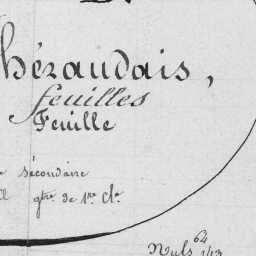 héraudais,
feuilles
Feuille
Sécondaire
gtre. de 1re. cle.
Nuls 64